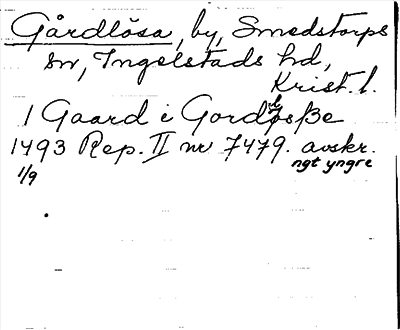 Gårdlösa, by, Smedstorps
sn, Ingelstads hd,
Krist. l.
1 Gaard i Gordløsße
1493 Rep. II nr 7479. avskr.
1/9 ngt yngre